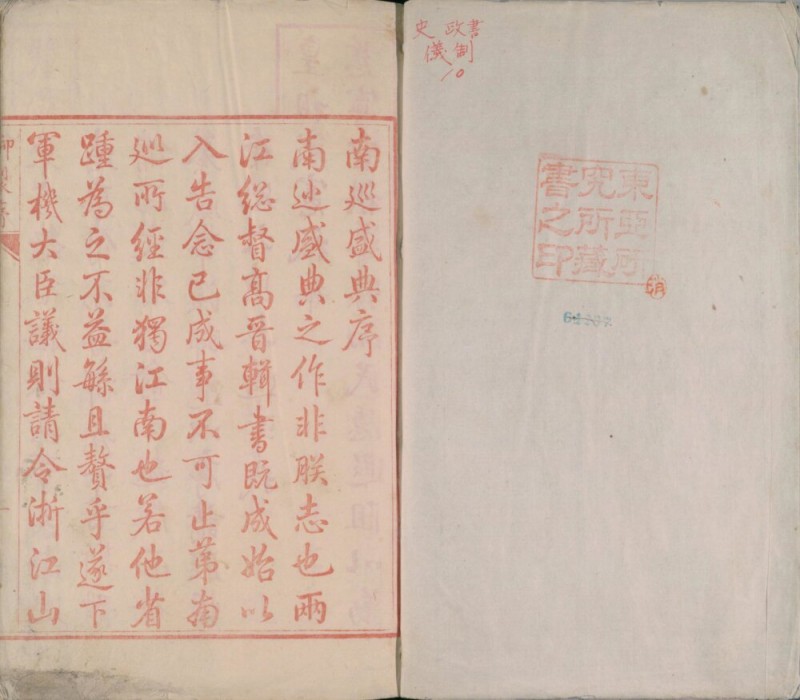 史 政書
儀制
10
東亞研
究所藏
書之印
消
南巡盛典序
南巡盛典之作非朕志也兩
江緫督髙晉輯書既成始以
入告念已成事不可止第南
巡所經非獨江南也若他省
踵為之不益緐且贅乎遂下
軍機大臣議則請令浙江山